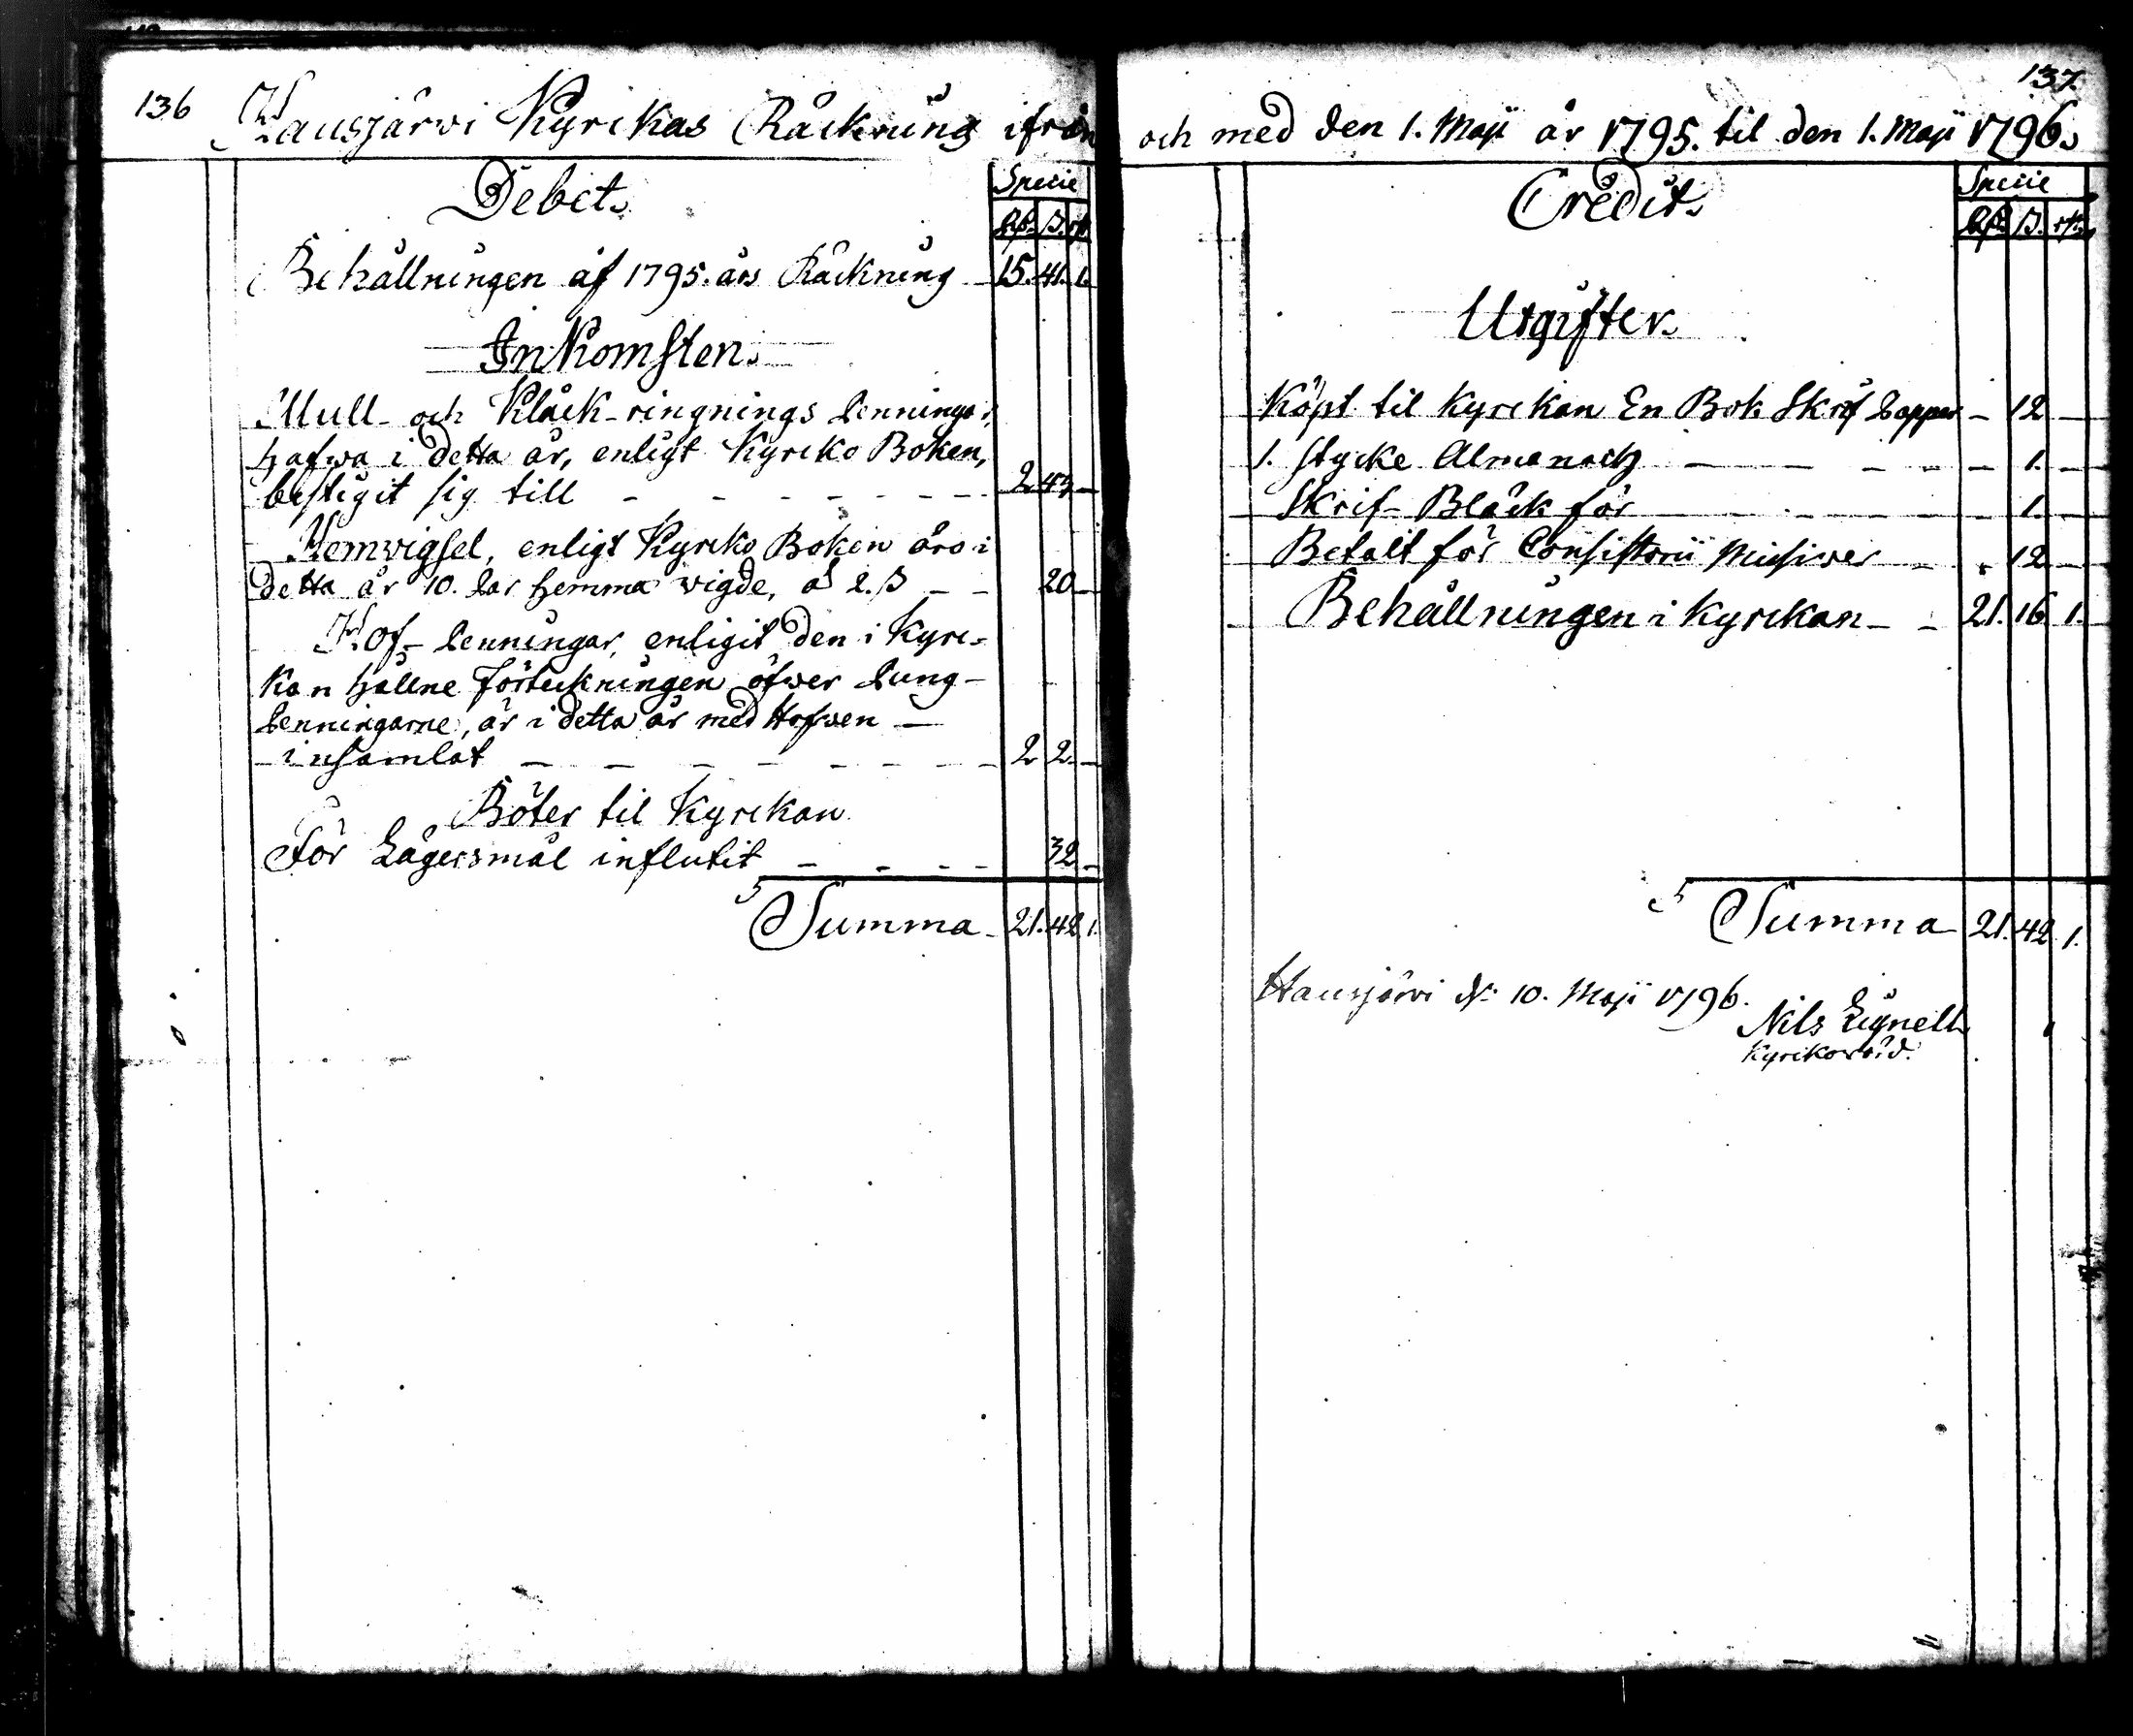 136
Hausjärvi Kyrckas Räckning ifrån
Debet.
Specie
Rd. ß. rst.
Behållningen af 1795. års Räckning 15. 41. 1.
Inkomsten.
Mull- och Klåck-ringnings Penningar,
hafwa i detta år, enligt Kyrcko Boken,
bestigit sig till - - - - - - - 2 43 -
Hemwigsel, enligt Kyrcko Boken äro i
detta år 10. Par hemma wigde, a 2. ß - - 20 -
Hof-Penningar, enligit den i Kyrc-
kan hållne förteckningen öfwer Pung-
Penningarne, är i detta år med Hofwen -
insamlat - - - - - - - 2 2 -
Böter til Kyrckan
För Lägersmål influtit - - - - 32 -
Summa - 21. 42. 1.
137.
och med den 1. Maji år 1795. til den 1. Maji 1796.
Credit.
Specie
Rd. ß. rst.
Utgifter.
Köpt til Kyrckan En Bok Skrif Papper - 12 -
1. stycke Almanach - - - - - - 1. -
Skrif-Bläck för - - - - - - 1. -
Betalt för Consistorii Missiver - - 12 -
Behållningen i Kyrckan - - 21. 16. 1.
Summa 21. 42. 1.
Hausjärvi d. 10. Maji 1796.
Nils Lignell
Kyrckowärd.